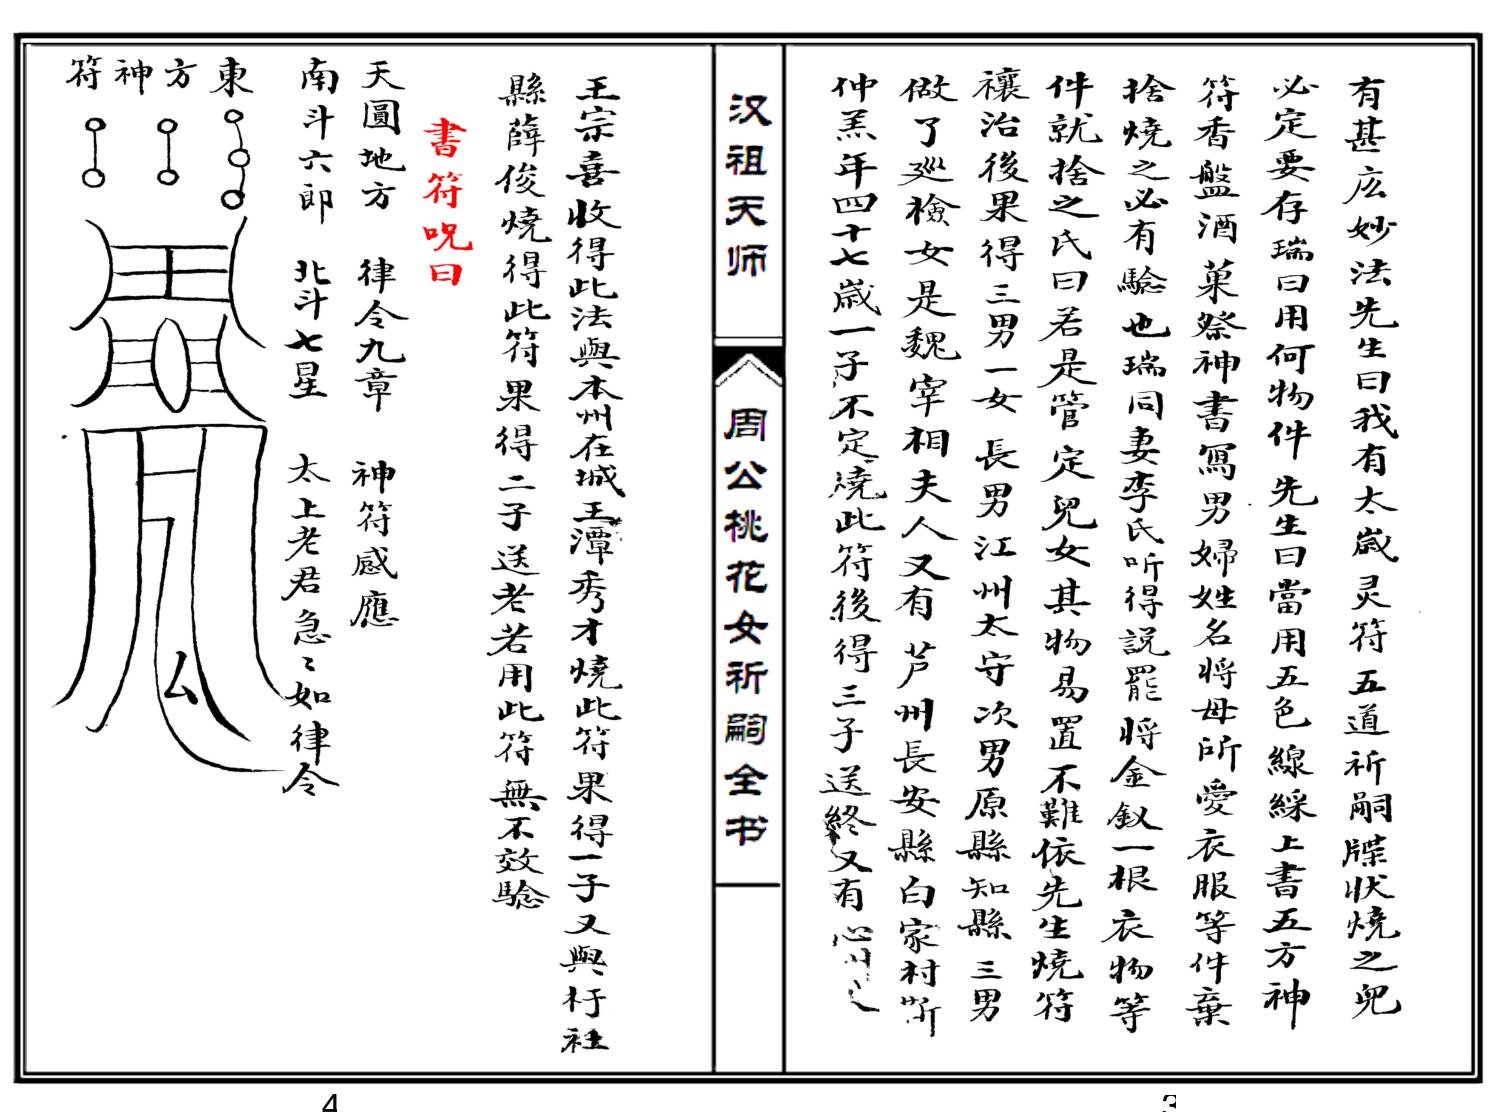 有甚広妙法先生曰我有太歲灵符五道祈嗣牒状燒之兒
必定要存瑞曰用何物件先生曰當用五色線綵上書五方神
符香盤酒菓祭神書寫男婦姓名将母所愛衣服等件棄
捨燒之必有驗也瑞同妻李氏听得説罷将金釵一根衣物等
件就捨之氏曰若是管定兒女其物易置不難依先生燒符
禳治後果得三男一女長男江州太守次男原縣知縣三男
做了廵檢女是魏宰相夫人又有芦州長安縣白家村
仲羔年四十七歲一子不定燒此符後得三子送終又有
汉祖天师
周公桃花女祈嗣全书
王宗喜收得此法與本州在城王潭秀才燒此符果得一子又與杅社
縣薛俊燒得此符果得二子送老若用此符無不效驗
書符呪曰
天圓地方 律令九章 神符感應
南斗六郎 北斗七星 太上老君急〻如律令
東方神符
厶
4
3